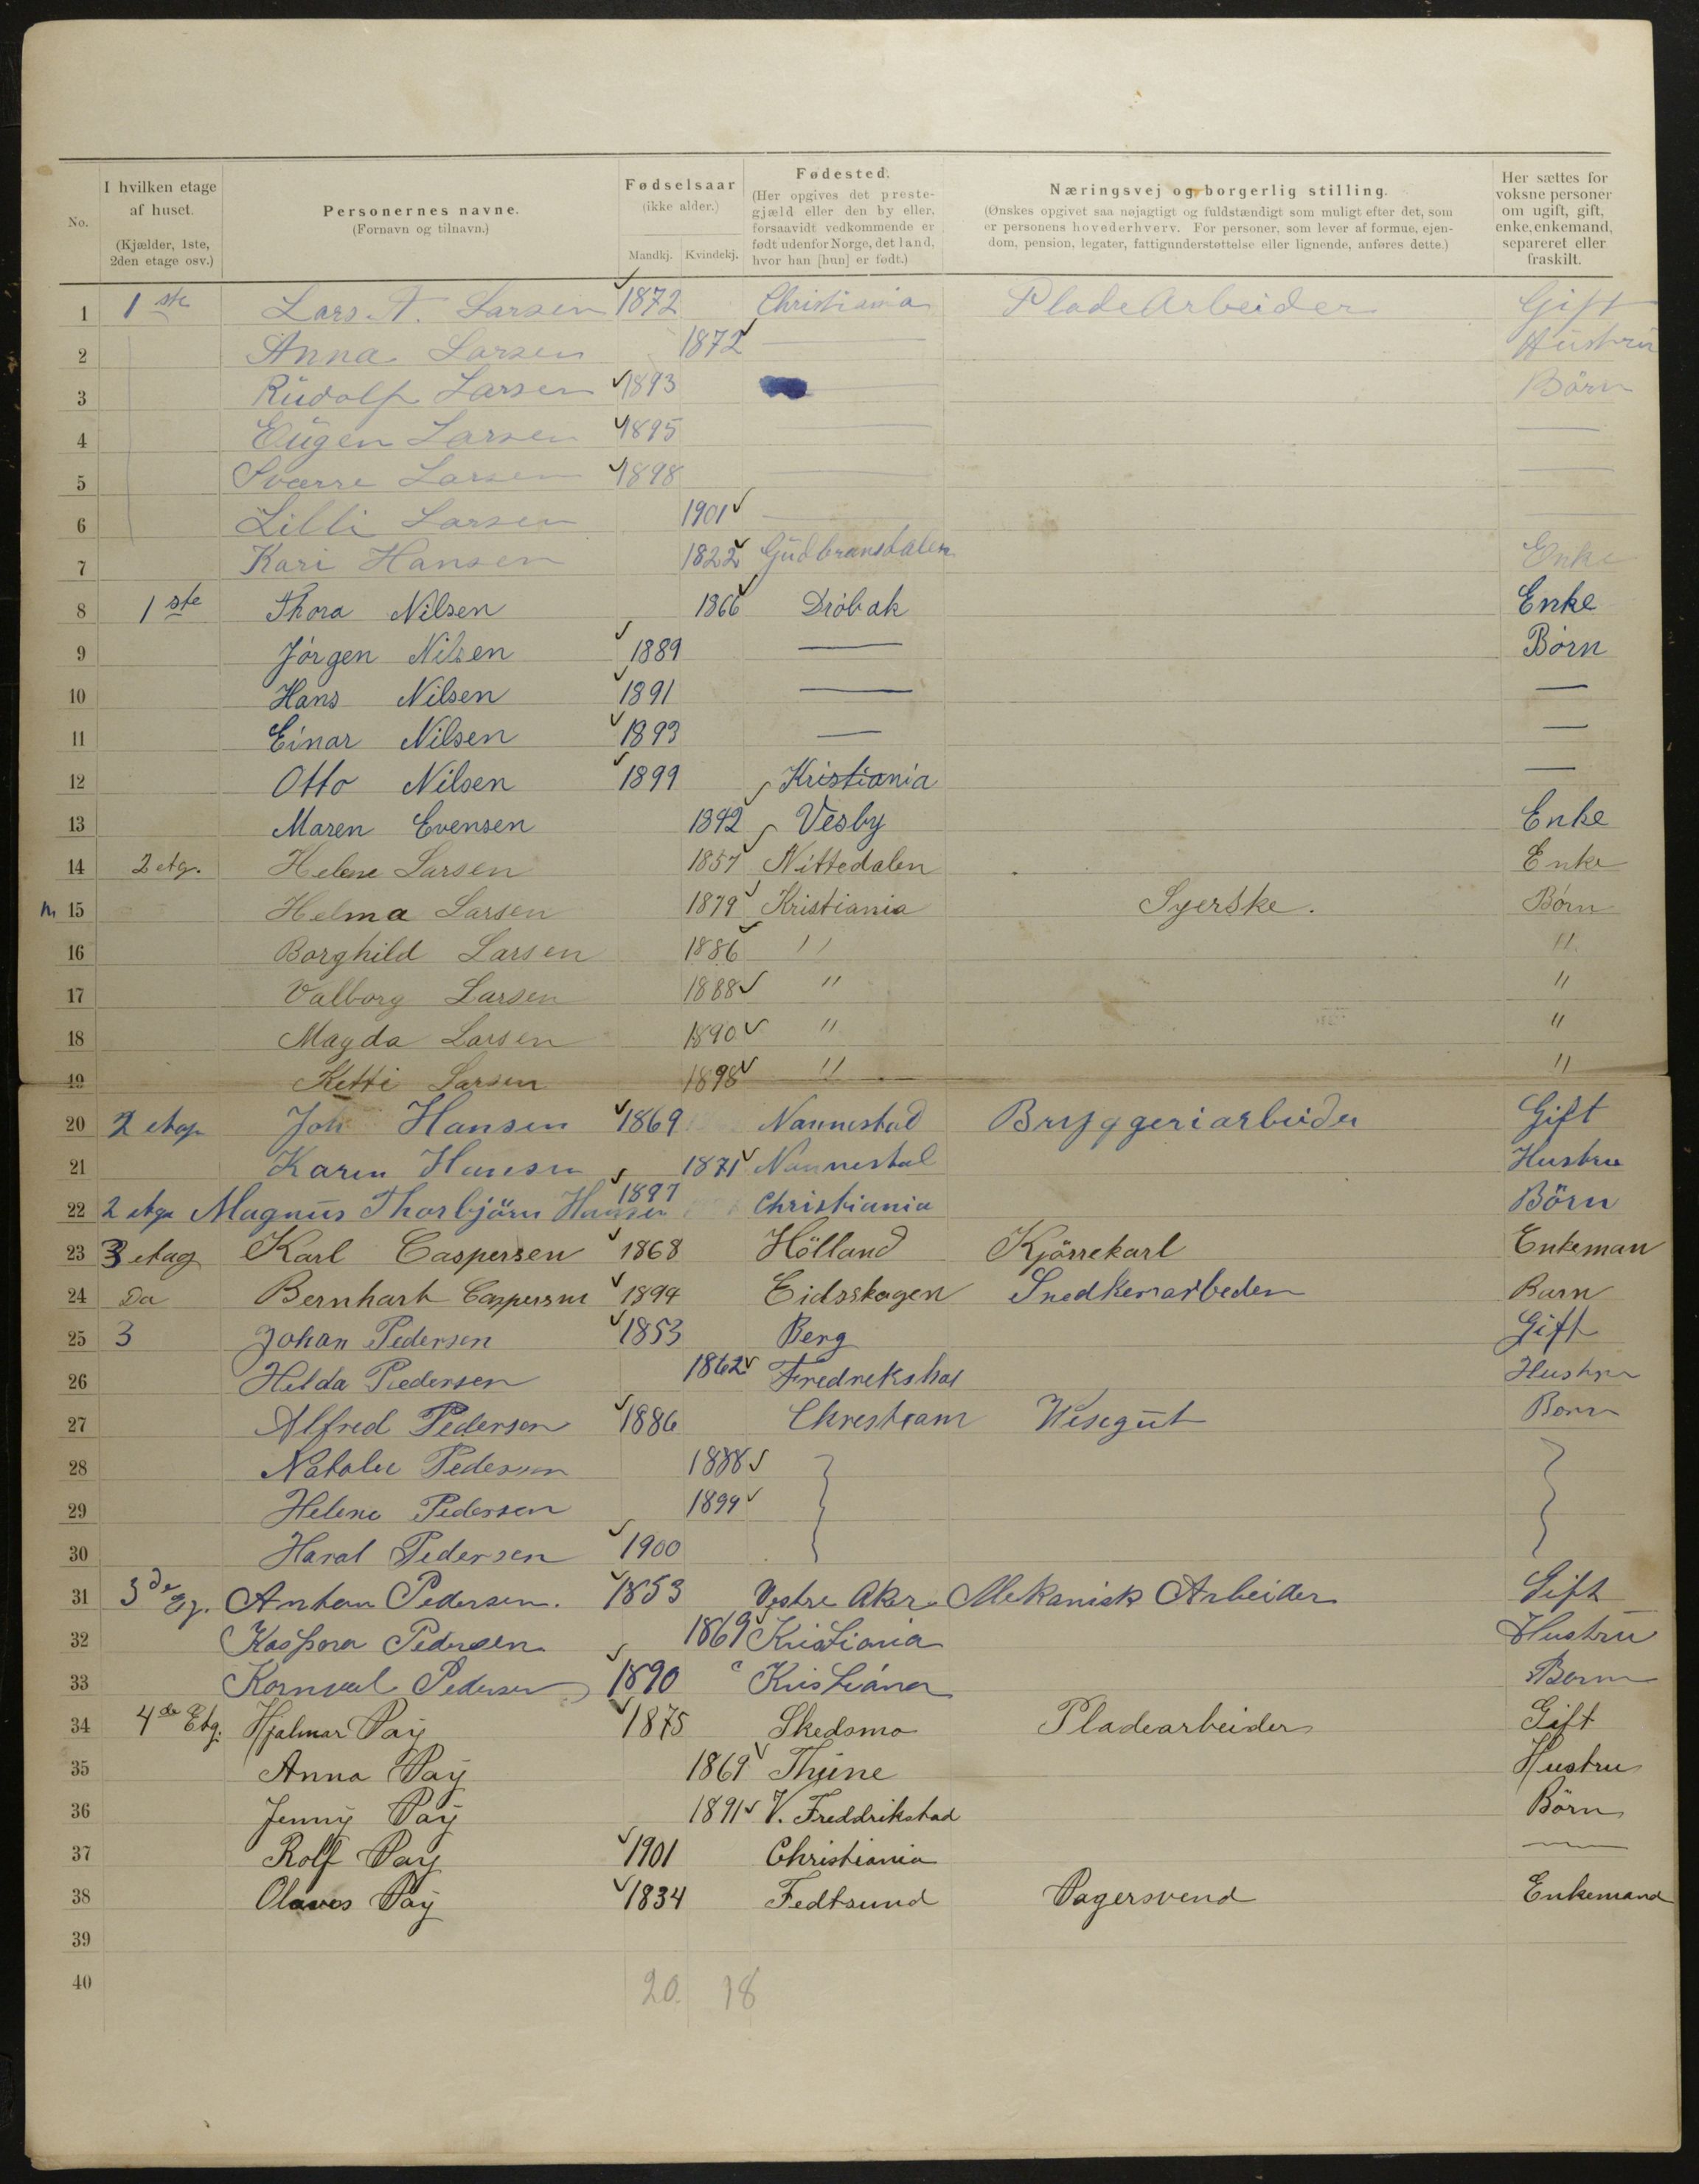 No.
I hvilken etage af huset. (Kjælder, 1ste, 2den etage osv.)
Personernes navne. (Fornavn og tilnavn.)
Fødselsaar (ikke alder.) Mandkj. Kvindekj.
Fødested. (Her opgives det prestegjæld eller den by eller, forsaavidt vedkommende er født udenfor Norge, det land, hvor han [hun] er født.)
Næringsvej og borgerlig stilling. (Ønskes opgivet saa nøjagtigt og fuldstændigt som muligt efter det, som er personens hovederhverv. For personer, som lever af formue, ejendom, pension, legater, fattigunderstøttelse eller lignende, anføres dette.)
Her sættes for voksne personer om ugift, gift, enke, enkemand, separeret eller fraskilt.
1 1ste Lars A. Larsen 1872 Christiania PladeArbeider Gift
2 Anna Larsen 1872 — Hustru
3 Rudolf Larsen 1893 — Börn
4 Eugen Larsen 1895 — —
5 Sverre Larsen 1898 — —
6 Lilli Larsen 1901 — —
7 Kari Hansen 1822 Gudbransdalen Enke
8 1ste Thora Nilsen 1866 Dröbak Enke
9 Jörgen Nilsen 1889 — Börn
10 Hans Nilsen 1891 — —
11 Einar Nilsen 1893 — —
12 Otto Nilsen 1899 Kristiania —
13 Maren Evensen 1842 Vesby Enke
14 2 etg. Helene Larsen 1857 Nittedalen Enke
15 Helma Larsen 1879 Kristiania Syerske. Börn
16 Borghild Larsen 1886 " "
17 Valborg Larsen 1888 " "
18 Magda Larsen 1890 " "
19 Ketti Larsen 1898 " "
20 2 etag Joh Hansen 1869 Nannestad Bryggeriarbeider Gift
21 Karen Hansen 1871 Nannestad Hustru
22 2 etge Magnus Thorbjörn Hansen 1897 Christiania Börn
23 3 etag Karl Caspersen 1868 Hölland Kjörrekarl Enkeman
24 Da Bernhart Caspersen 1894 Eidsskogen Snedkerarbeder Barn
25 3 Johan Pedersen 1853 Berg Gift
26 Helda Pedersen 1862 Fredrekshal Hustru
27 Alfred Pedersen 1886 Chrestiam Visegut Born
28 Natalie Pedersen 1888
29 Helene Pedersen 1899
30 Haral Pedersen 1900
31 3de Eg. Anton Pedersen. 1853 Vestre Aker Mekanisk Arbeider Gift
32 Kaspora Pedersen 1869 Kristiania Hustru
33 Pedersen 1890 Kristiána Born
34 4de Etg. Hjalmar Pay 1875 Skedsmo Pladearbeider Gift
35 Anna Pay 1869 Thune Hustru
36 Jenny Pay 1891 V. Freddrikstad Börn
37 Rolf Pay 1901 Christiania —
38 Olaves Pay 1834 Fedtsund Pagersvend Enkemand
39
40
20. 18